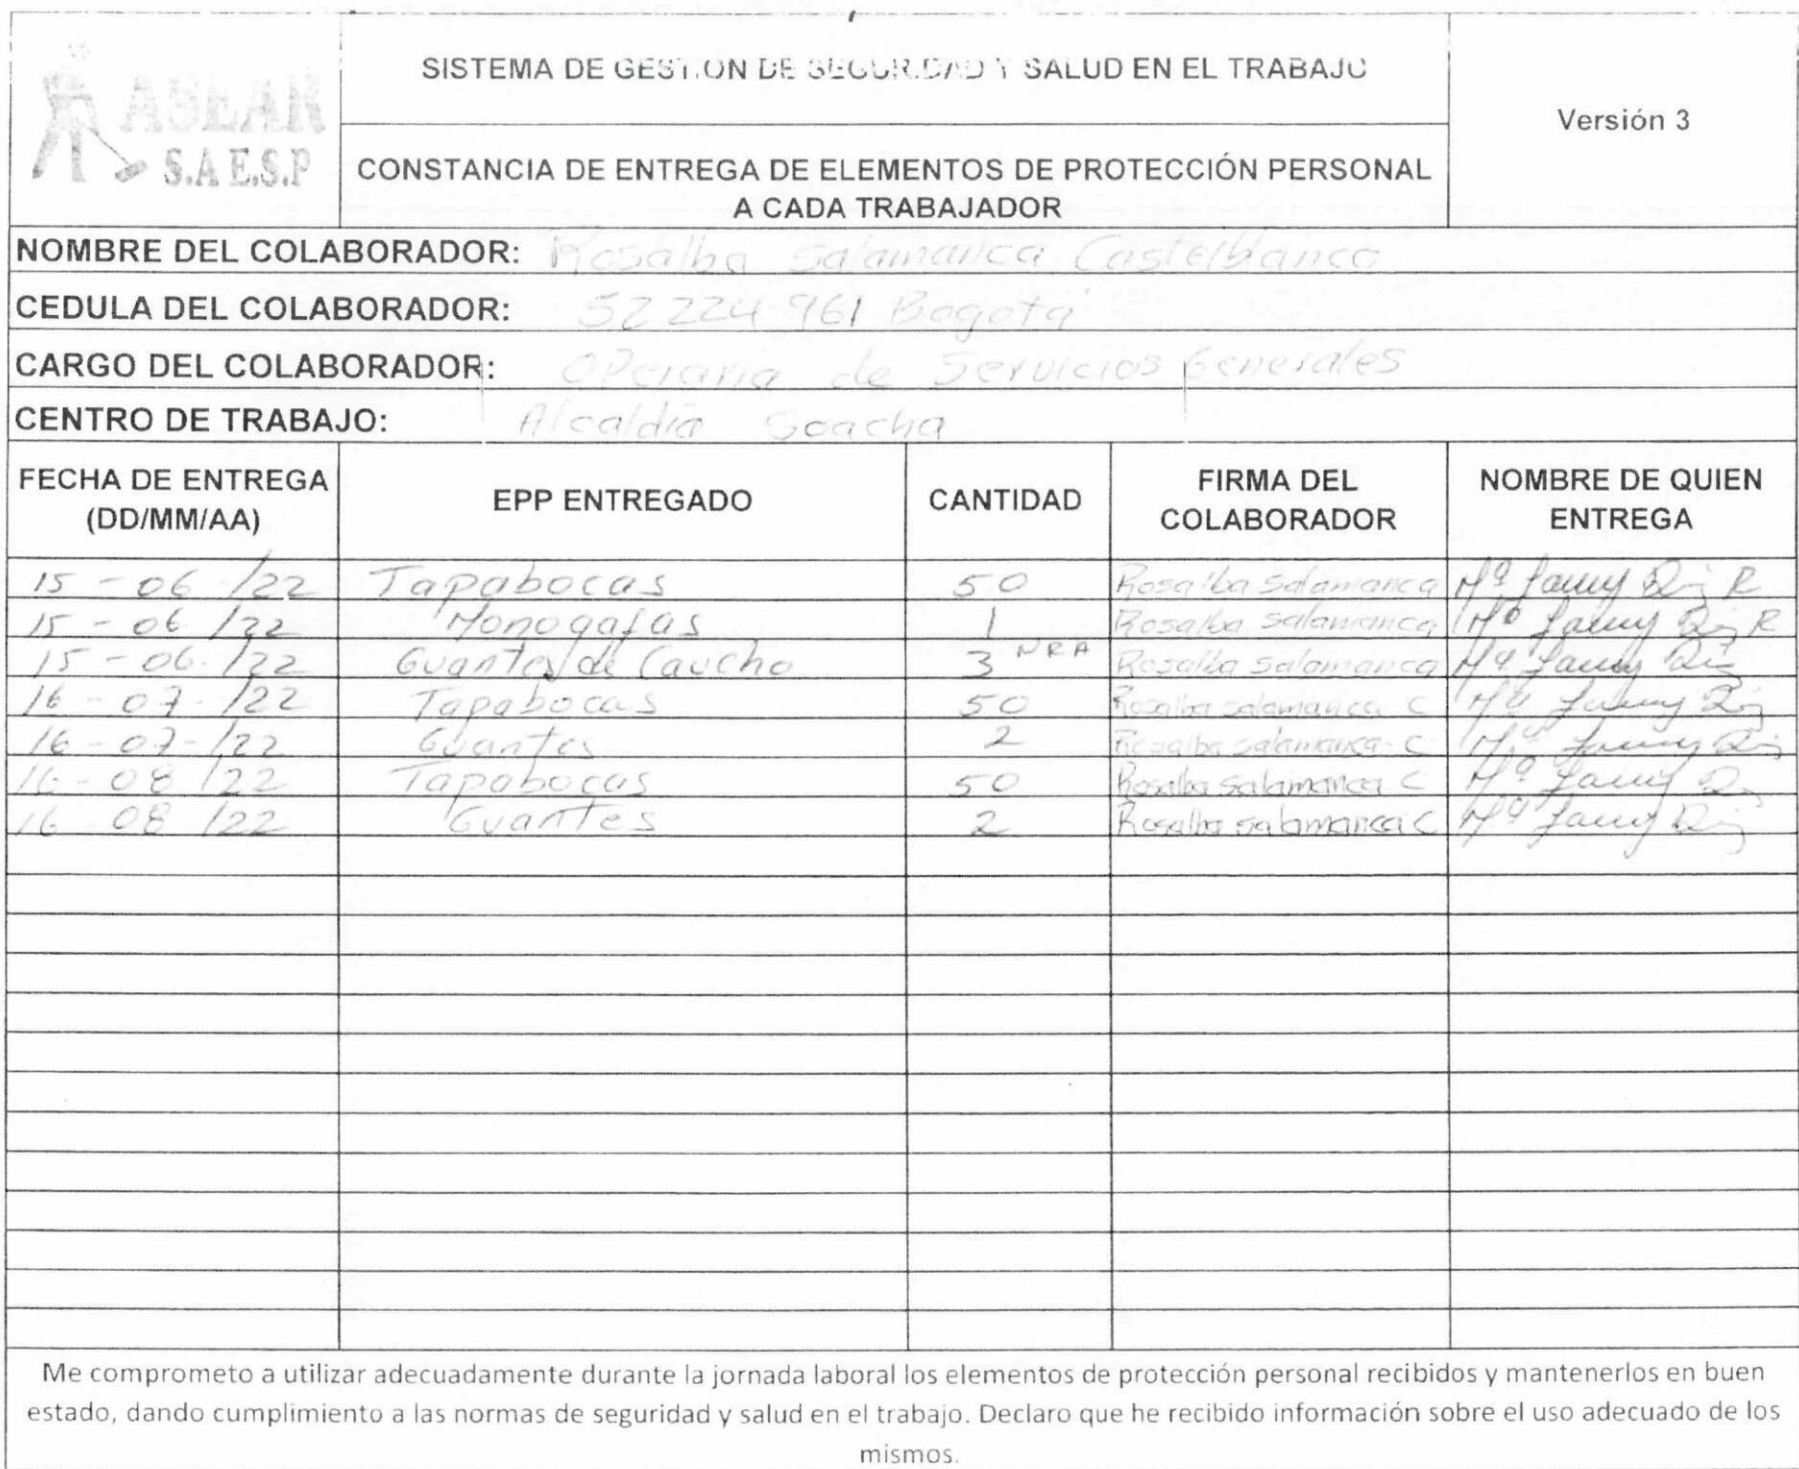 ASEAR
S.A E.S.P
SISTEMA DE GESTION DE SEGURIDAD Y SALUD EN EL TRABAJO
Versión 3
CONSTANCIA DE ENTREGA DE ELEMENTOS DE PROTECCIÓN PERSONAL
A CADA TRABAJADOR
NOMBRE DEL COLABORADOR: Rosalba Salamanca Castelblanco
CEDULA DEL COLABORADOR: 52 224 961 Bogotá
CARGO DEL COLABORADOR: Operaria de Servicios Generales
CENTRO DE TRABAJO: Alcaldia Soacha
FECHA DE ENTREGA (DD/MM/AA) EPP ENTREGADO CANTIDAD FIRMA DEL COLABORADOR NOMBRE DE QUIEN ENTREGA
15 - 06 /22 Tapabocas 50 Rosalba Salamanca Mª R
15 - 06 /22 Monogafas 1 Rosalba Salamanca Mª R
15 - 06 /22 Guantes de Caucho 3 Rosalba Salamanca Mª
16 - 07 - /22 Tapabocas 50 Rosalba Salamanca C Mª
16 - 07 - /22 Guantes 2 Rosalba Salamanca C Mª
16 - 08 /22 Tapabocas 50 Rosalba Salamanca C Mª
16 - 08 /22 Guantes 2 Rosalba Salamanca C Mª
Me comprometo a utilizar adecuadamente durante la jornada laboral los elementos de protección personal recibidos y mantenerlos en buen
estado, dando cumplimiento a las normas de seguridad y salud en el trabajo. Declaro que he recibido información sobre el uso adecuado de los
mismos.